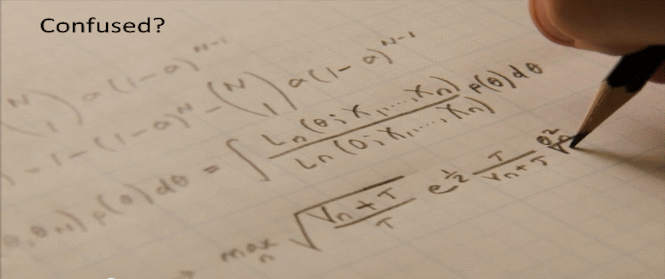 Confused?
N
1 ) a(1-a)^{N-1}
) - 1-(1-a)^N - (N
1) a(1-a)^{N-1}
θn) F(θ)dθ = ∫ Ln(θ; X1,...,Xn) / Ln(0; X1,...,Xn) F(θ)dθ
max n √ (Vn+T / T) e^{½ T / Vn+T θ²